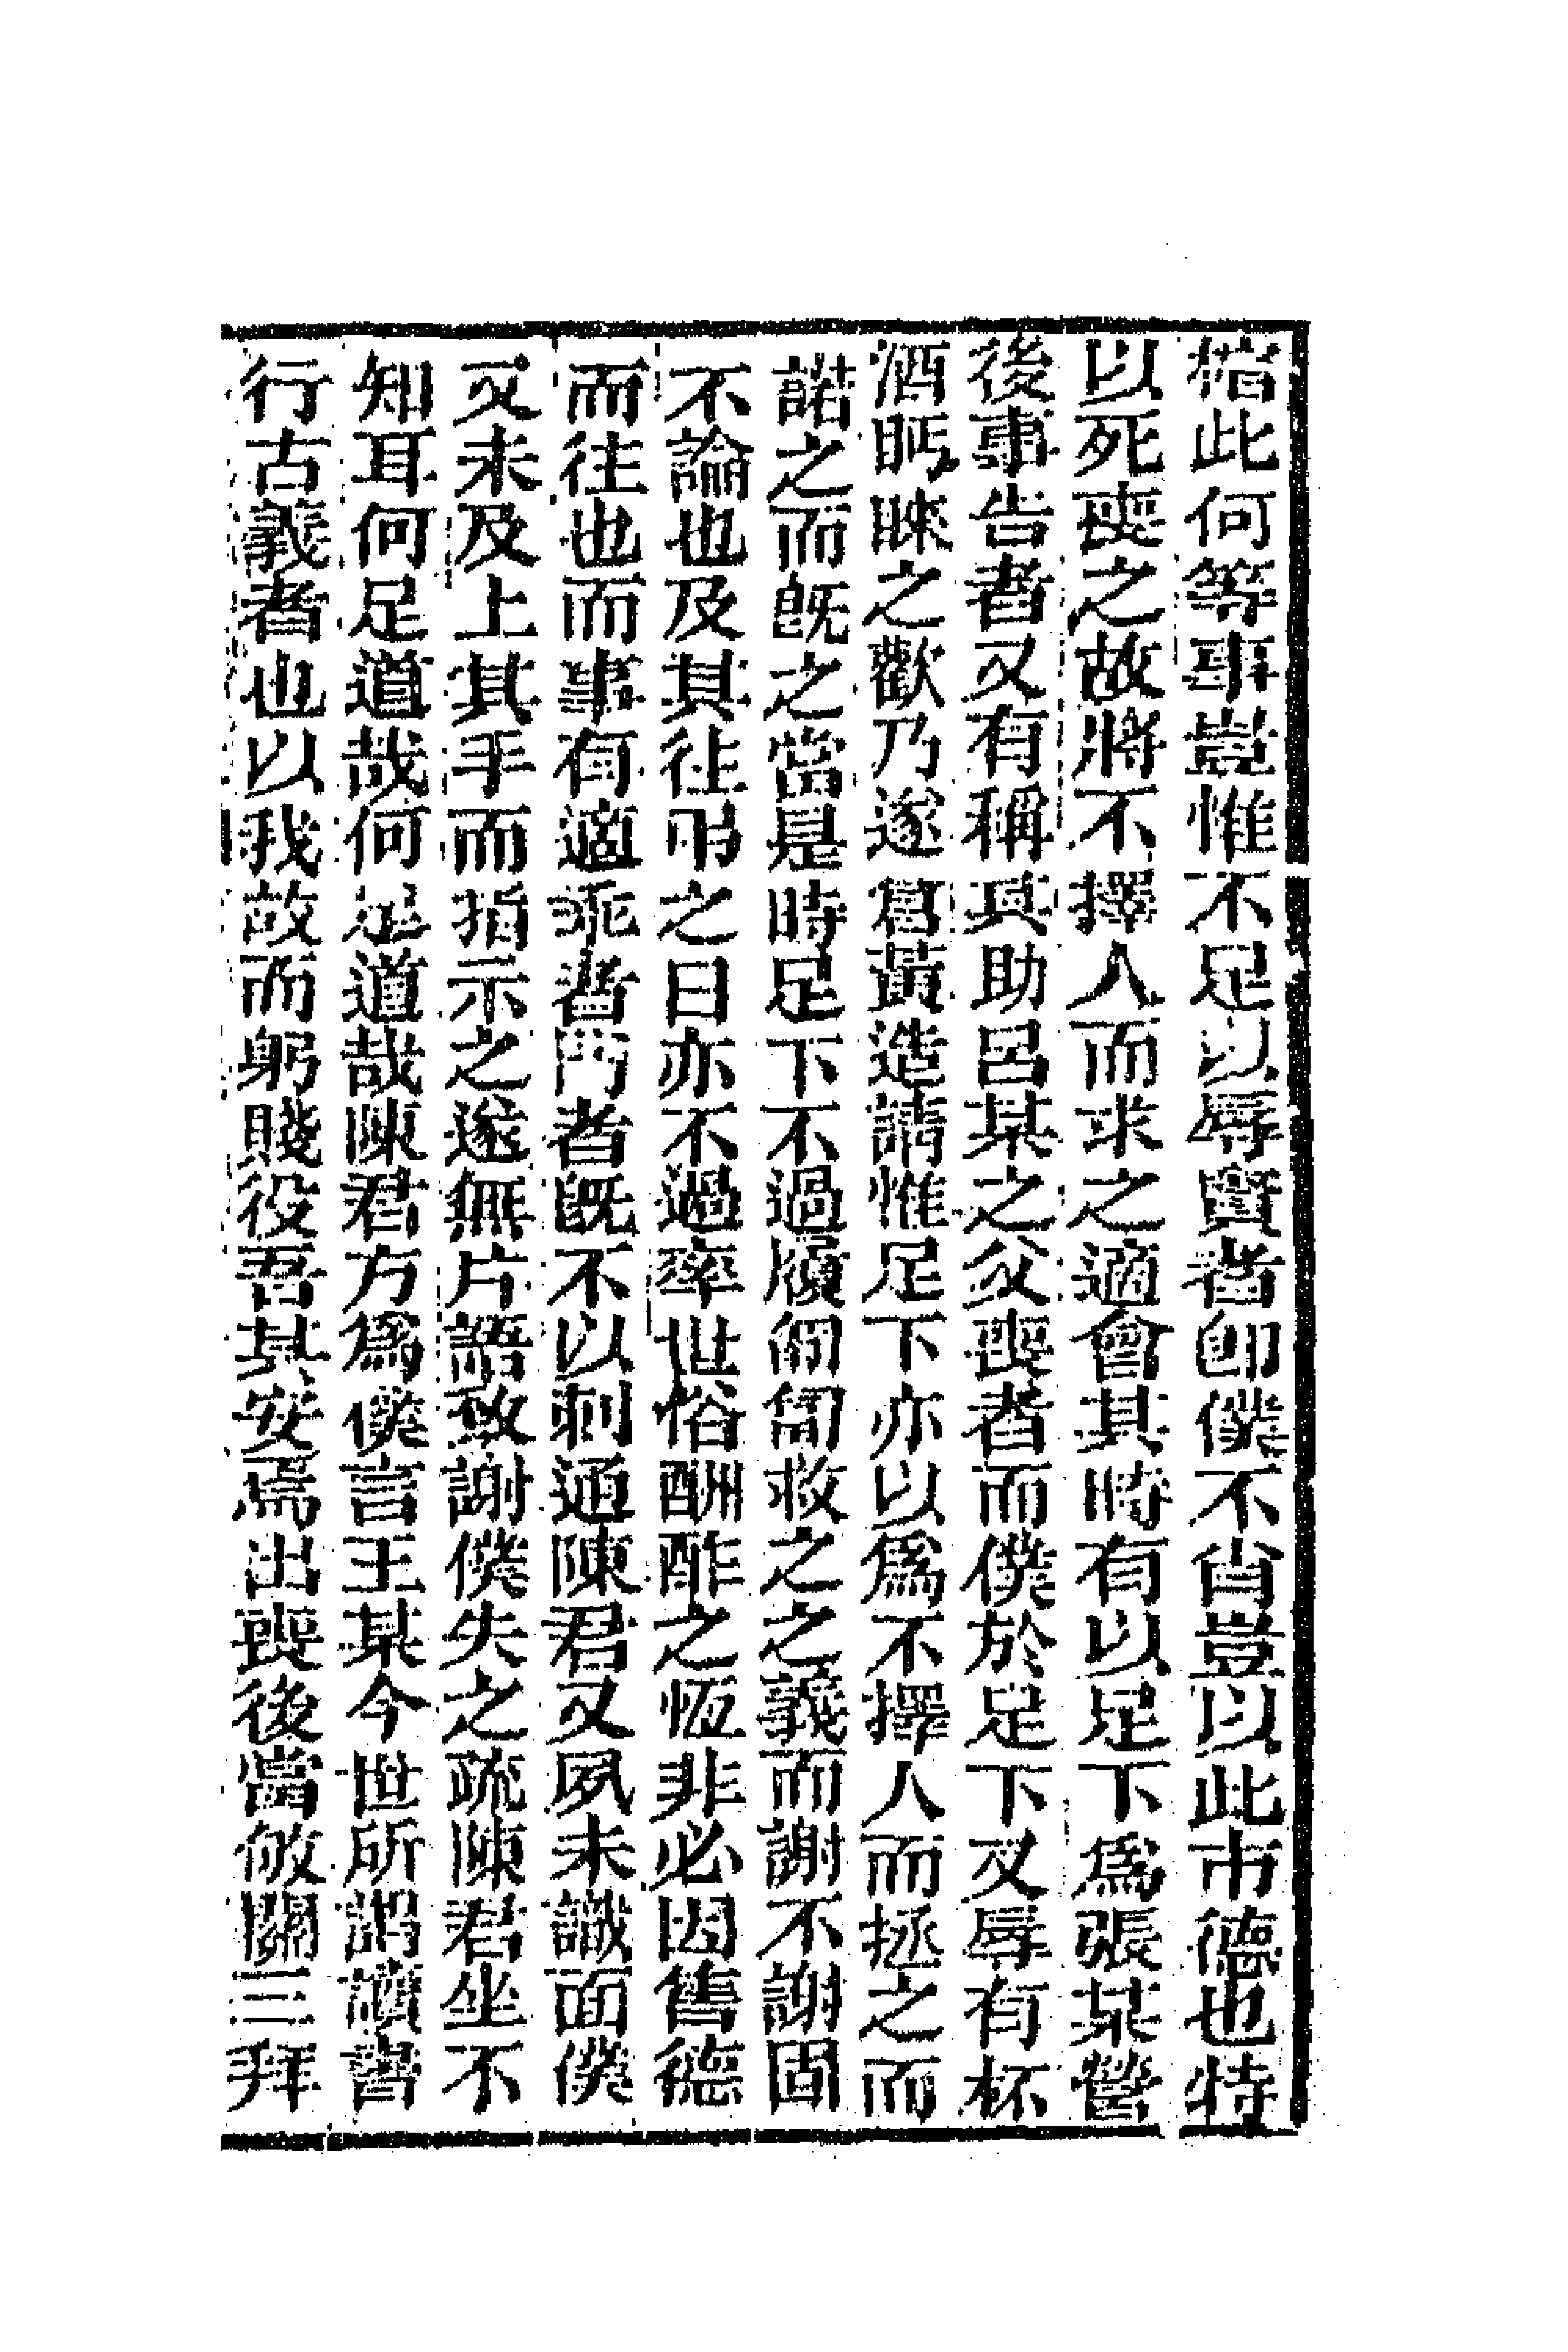 楷此何等事豈惟不足以辱賢者卽僕不肖豈以此市德也特
以死喪之故將不擇人而求之適會其時有以足下爲張某營
後事告者又有稱其助呂某之父喪者而僕於足下又辱有杯
酒眄睞之歡乃遂舊黃造請惟足下亦以爲不擇人而拯之而
諾之而旣之當是時足下不過履匍匐救之之義而謝不謝固
不論也及其往弔之日亦不過率世俗酬酢之恆非必因售德
而往也而事有適乖者門者旣不以刺通陳君又夙未識面僕
又未及上其手而指示之遂無片語致謝僕失之疏陳君坐不
知耳何足道哉何足道哉陳君方爲僕言王某今世所謂讀書
行古義者也以我故而躬賤役吾其安焉出喪後當敂關三拜